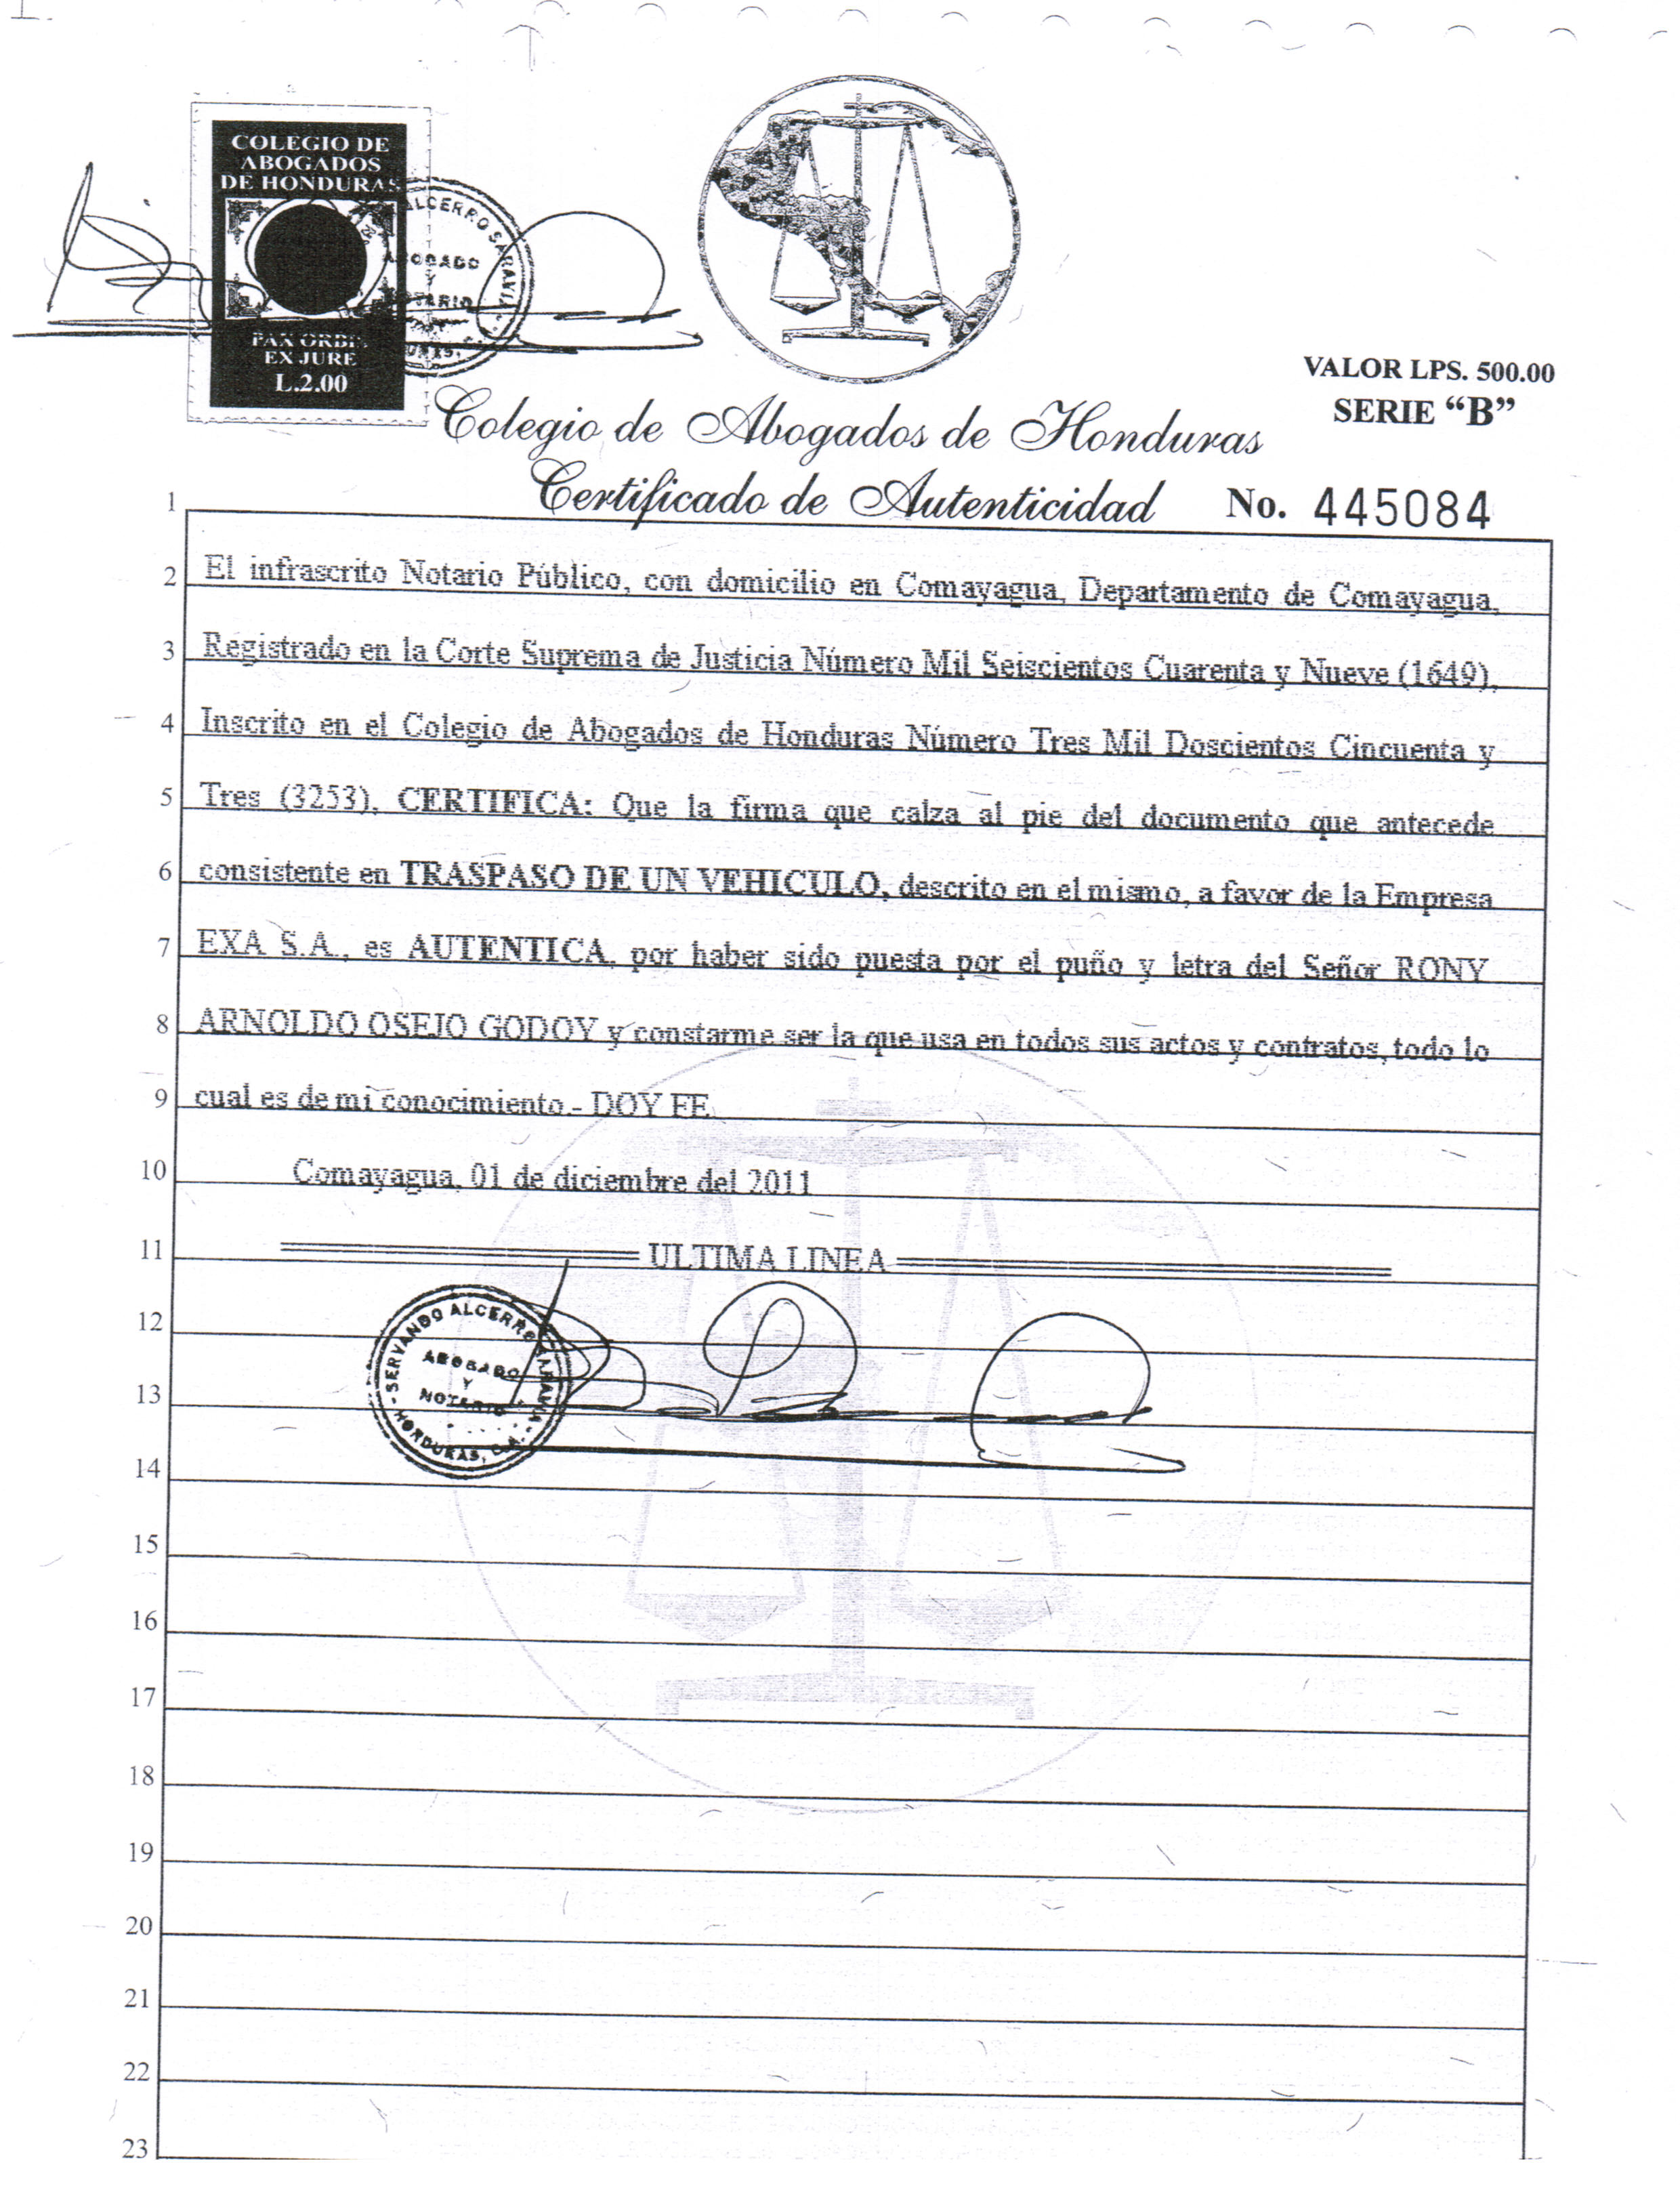 COLEGIO DE
ABOGADOS
DE HONDURAS
PAX ORBIS
EX JURE
L.2.00
ALCERRO SARAVIA
ABOGADO
Y
NOTARIO
VALOR LPS. 500.00
SERIE “B”
Colegio de Abogados de Honduras
Certificado de Autenticidad No. 445084
1
2 El infrascrito Notario Público, con domicilio en Comayagua, Departamento de Comayagua,
3 Registrado en la Corte Suprema de Justicia Número Mil Seiscientos Cuarenta y Nueve (1649),
4 Inscrito en el Colegio de Abogados de Honduras Número Tres Mil Doscientos Cincuenta y
5 Tres (3253), CERTIFICA: Que la firma que calza al pie del documento que antecede
6 consistente en TRASPASO DE UN VEHICULO, descrito en el mismo, a favor de la Empresa
7 EXA S.A., es AUTENTICA, por haber sido puesta por el puño y letra del Señor RONY
8 ARNOLDO OSEJO GODOY y constarme ser la que usa en todos sus actos y contratos, todo lo
9 cual es de mi conocimiento.- DOY FE
10 Comayagua, 01 de diciembre del 2011
11 ULTIMA LINEA
12
SERVANDO ALCERRO SARAVIA
ABOGADO
Y
NOTARIO
HONDURAS, C.A.
13
14
15
16
17
18
19
20
21
22
23